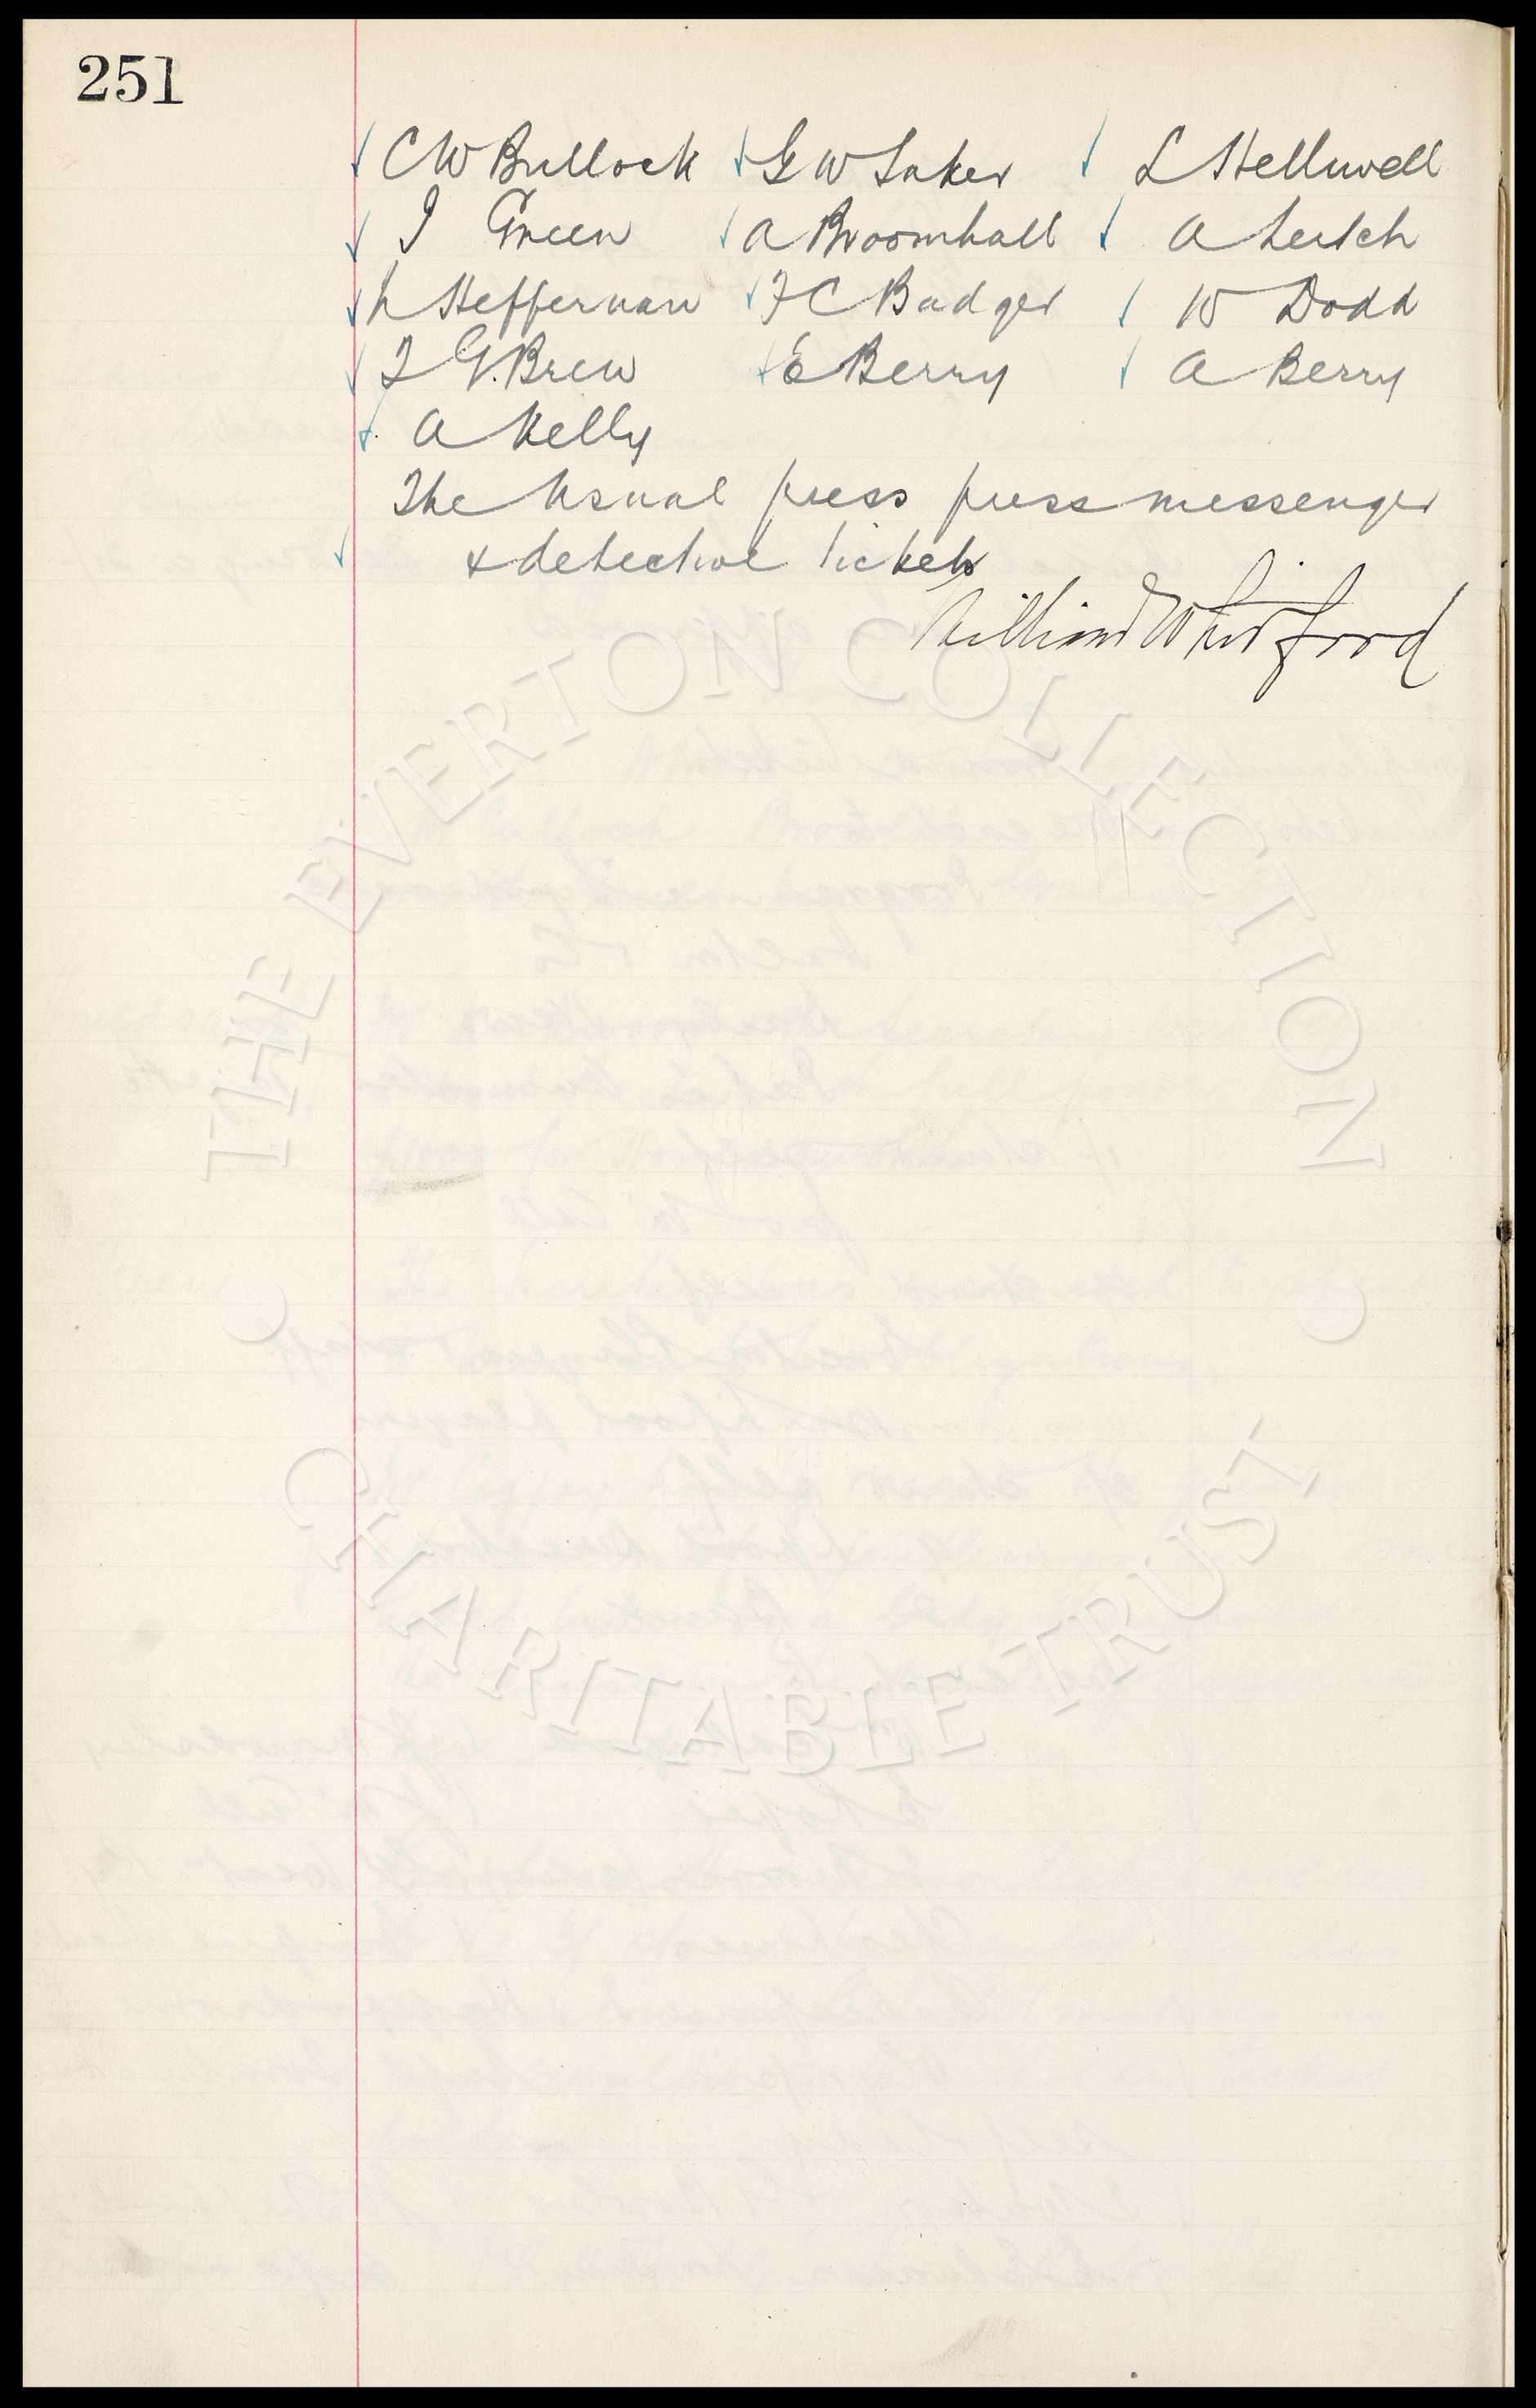 251
C W Bullock G W Laker L Helliwell
J Green A Broomhall A Leitch
L Heffernan F C Badger W Dodd
T G. Brew E Berry A Berry
A Kelly
The usual press press messenger
& detective tickets
William Whitford
THE EVERTON COLLECTION
CHARITABLE TRUST